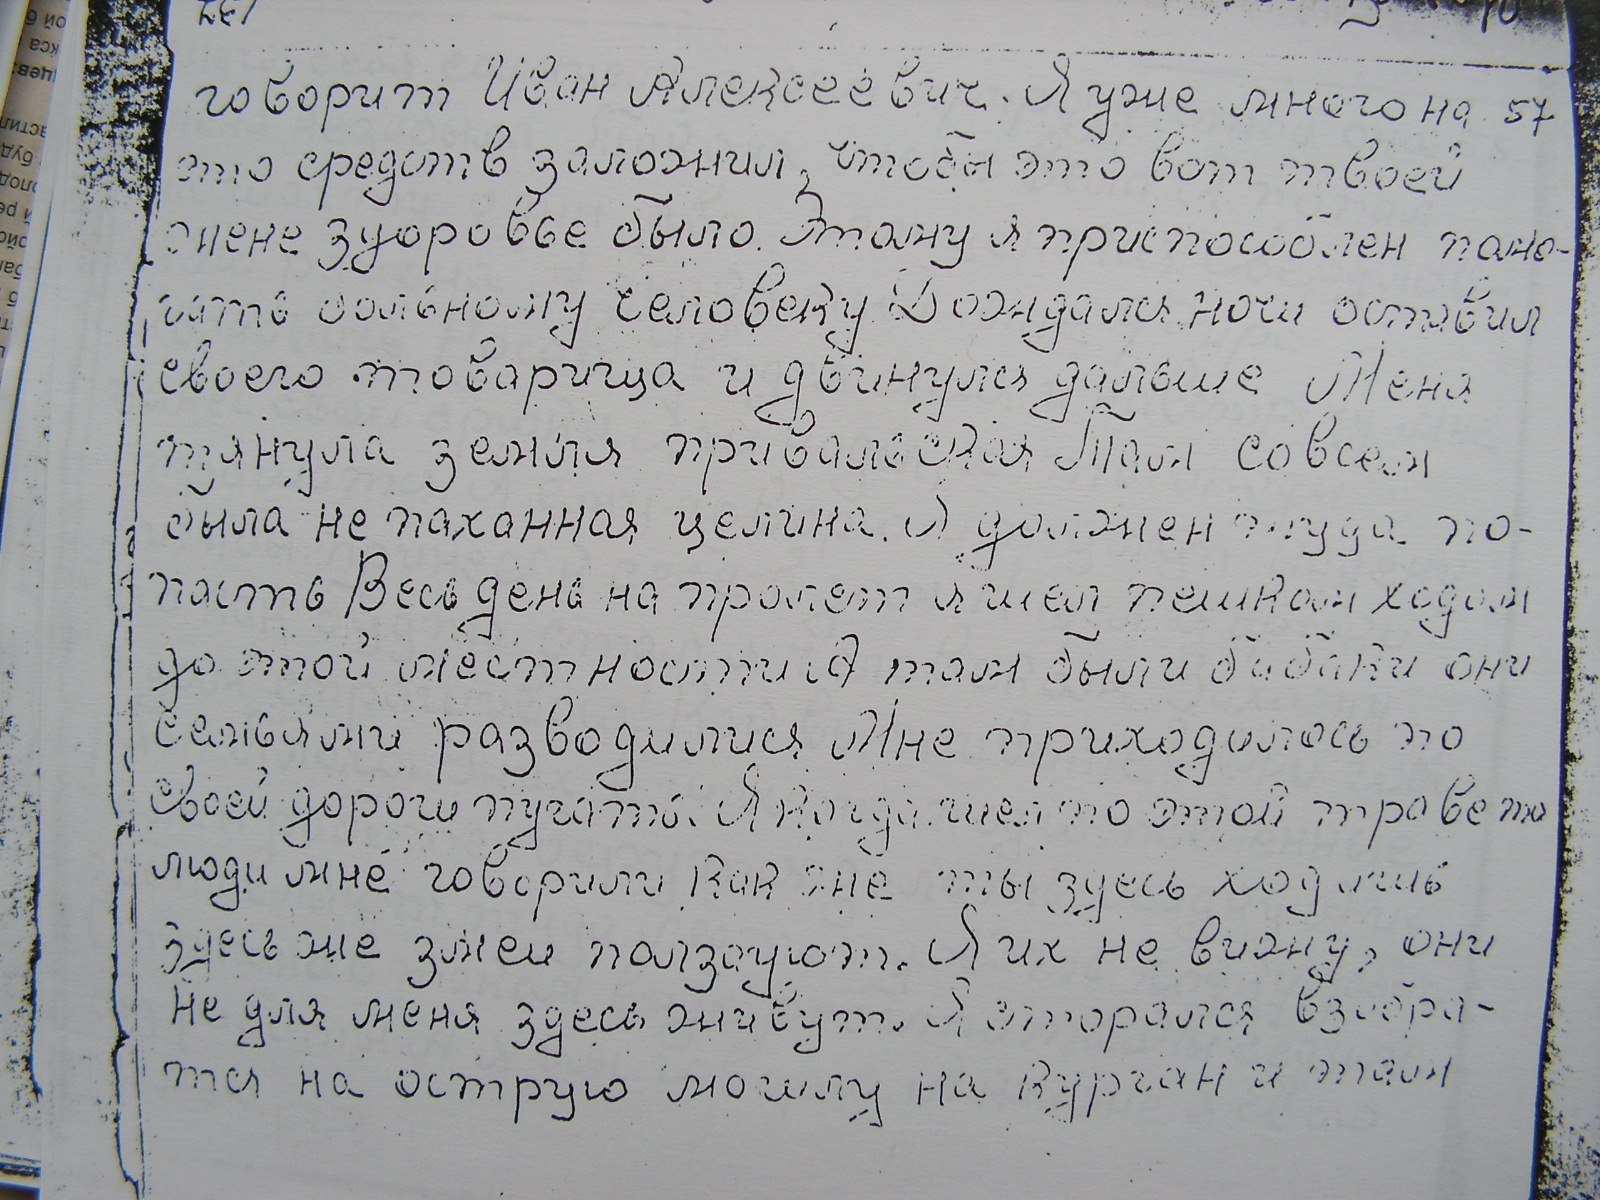 говорит Иван Алексеевич. Я уже много на 57
это средств заложил, чтобы это вот твоей
жене здоровье было. Этому я приспособлен пано-
гать больному человеку Дождался ночи оставил
своего товарища и двинулся дальше Меня
тянула земля привальская Там совсем
была не паханная целина. Я должен туда по-
пасть Весь день на пролет я шел пешком ходом
до этой местности А там были бабаки они
семьями разводилися Мне приходилось по
своей дороги пугать. Я когда шел по этой траве то
люди мне говорили как же ты здесь ходишь
здесь же змеи ползают. Я их не вижу, они
не для меня здесь живут. Я старался взобра-
тся на острую могилу на курган и там